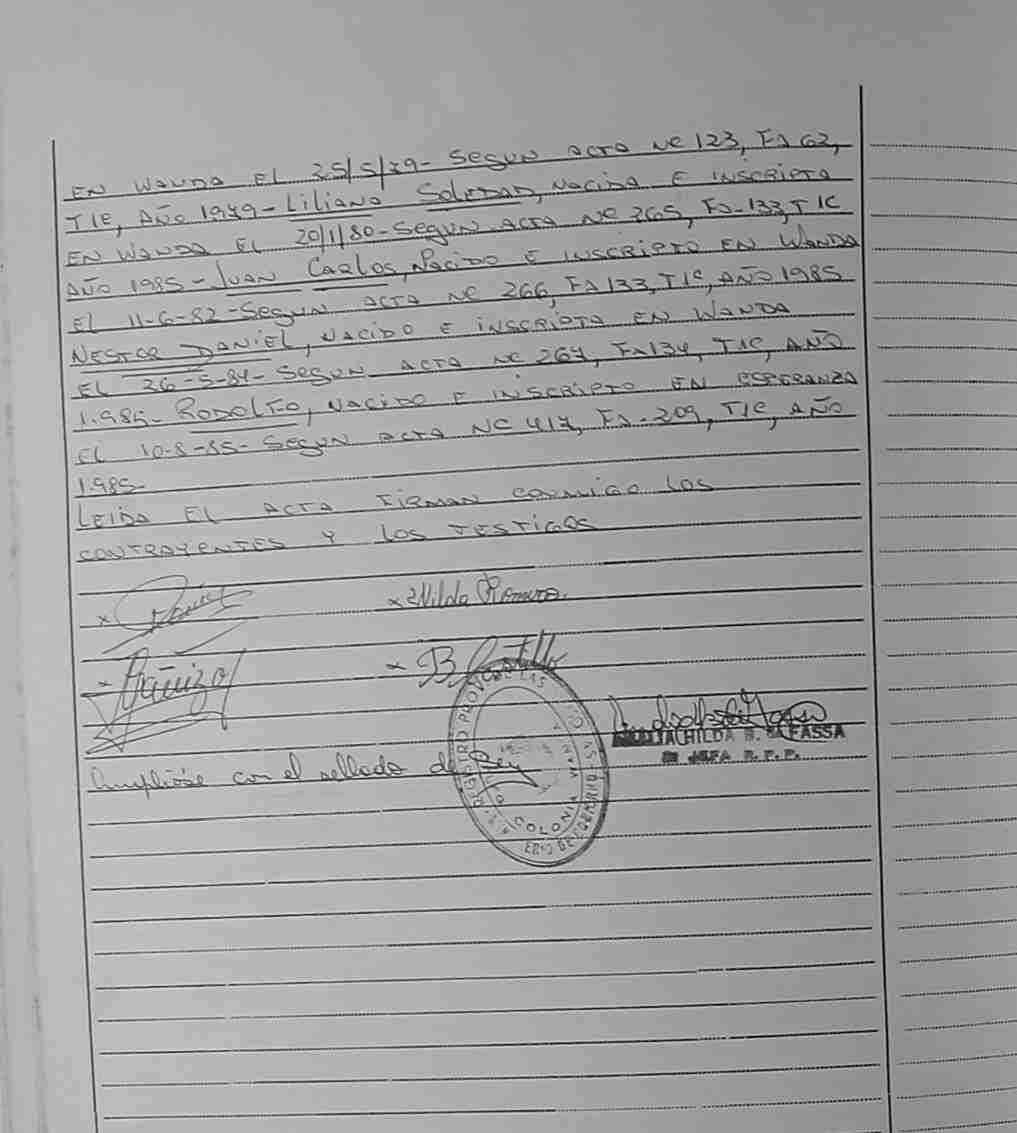 EN WANDA EL 25/5/79- SEGUN ACTA Nº 123, Fº 62,
T1º, AÑO 1979- LILIANA SOLEDAD, NACIDA E INSCRIPTA
EN WANDA EL 20/1/80- SEGUN ACTA Nº 265, Fº-133, T1º
AÑO 1985- JUAN CARLOS, NACIDO E INSCRIPTO EN WANDA
EL 11-6-82- SEGUN ACTA Nº 266, Fº 133, T1º, AÑO 1985
NESTOR DANIEL, NACIDO E INSCRIPTO EN WANDA
EL 26-5-84- SEGUN ACTA Nº 267, Fº 134, T1º, AÑO
1.985- RODOLFO, NACIDO E INSCRIPTO EN ESPERANZA
EL 10-8-85- SEGUN ACTA Nº 417, Fº-209, T1º, AÑO
1.985-
LEIDA EL ACTA FIRMAN CONMIGO LOS
CONTRAYENTES Y LOS TESTIGOS
x
x Nilda Romero.
x
x B Castillo
FASSA
JEFA R. P. P.
Ampliose con el sellado de Ley
REGISTRO PROV. DE LAS PERSONAS
COLONIA WANDA